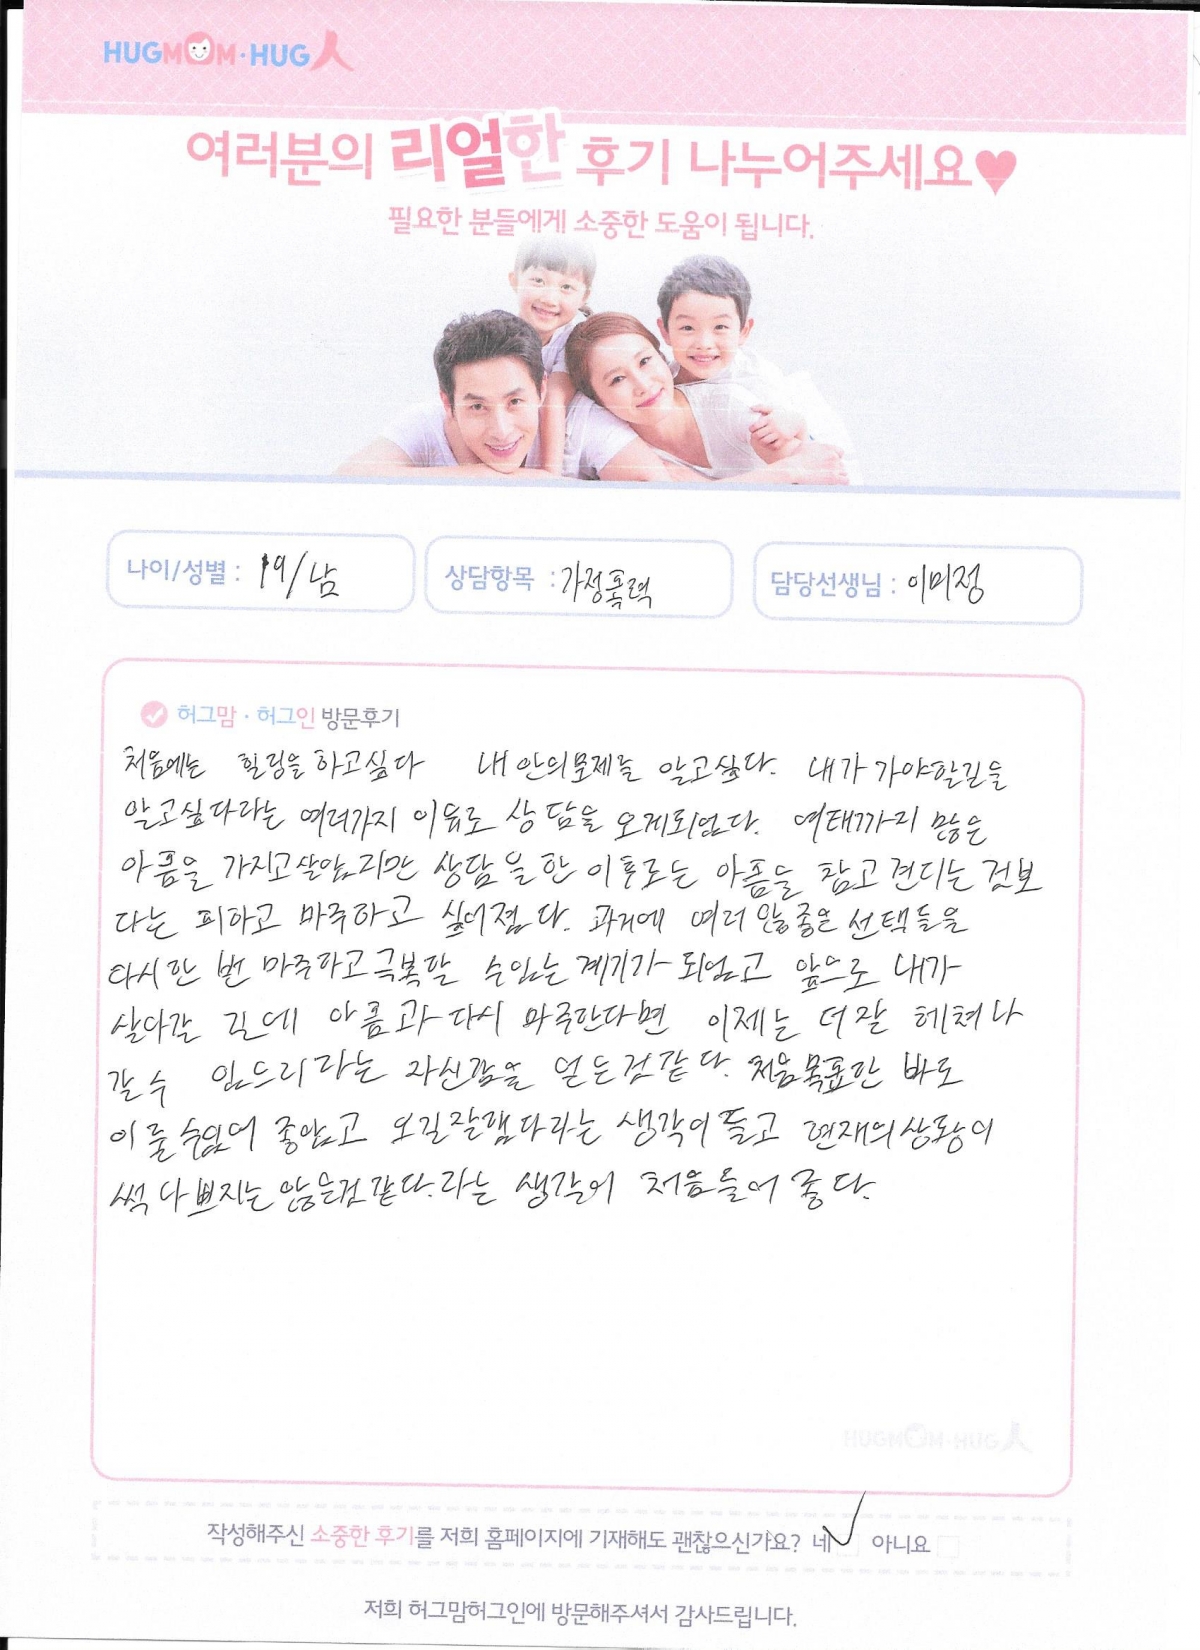 HUGMOM·HUG人
여러분의 리얼한 후기 나누어주세요♥
필요한 분들에게 소중한 도움이 됩니다.
나이/성별 : 19/남 상담항목 : 가정폭력 담당선생님 : 이미정
허그맘·허그인 방문후기
처음에는 힐링을 하고싶다 내 안의문제를 알고싶다. 내가 가야할길을
알고싶다라는 여러가지 이유로 상담을 오게되었다. 여태까지 많은
아픔을 가지고살았지만 상담을한 이후로는 아픔을 참고 견디는 것보
다는 피하고 마주하고 싶어졌다. 과거에 여러 않좋은 선택들을
다시한 번 마주하고극복할 수있는 계기가 되었고 앞으로 내가
살아갈 길에 아픔과 다시 마주한다면 이제는 더잘 헤쳐나
갈수 있으리라는 자신감을 얻은것같다. 처음목표한 바도
이룰수있어 좋았고 오길잘했다라는 생각이들고 현재의상황이
썩 나쁘지는 않은것같다.라는 생각이 처음들어 좋다.
HUGMOM·HUG人
작성해주신 소중한 후기를 저희 홈페이지에 기재해도 괜찮으신가요? 네 아니요
저희 허그맘허그인에 방문해주셔서 감사드립니다.